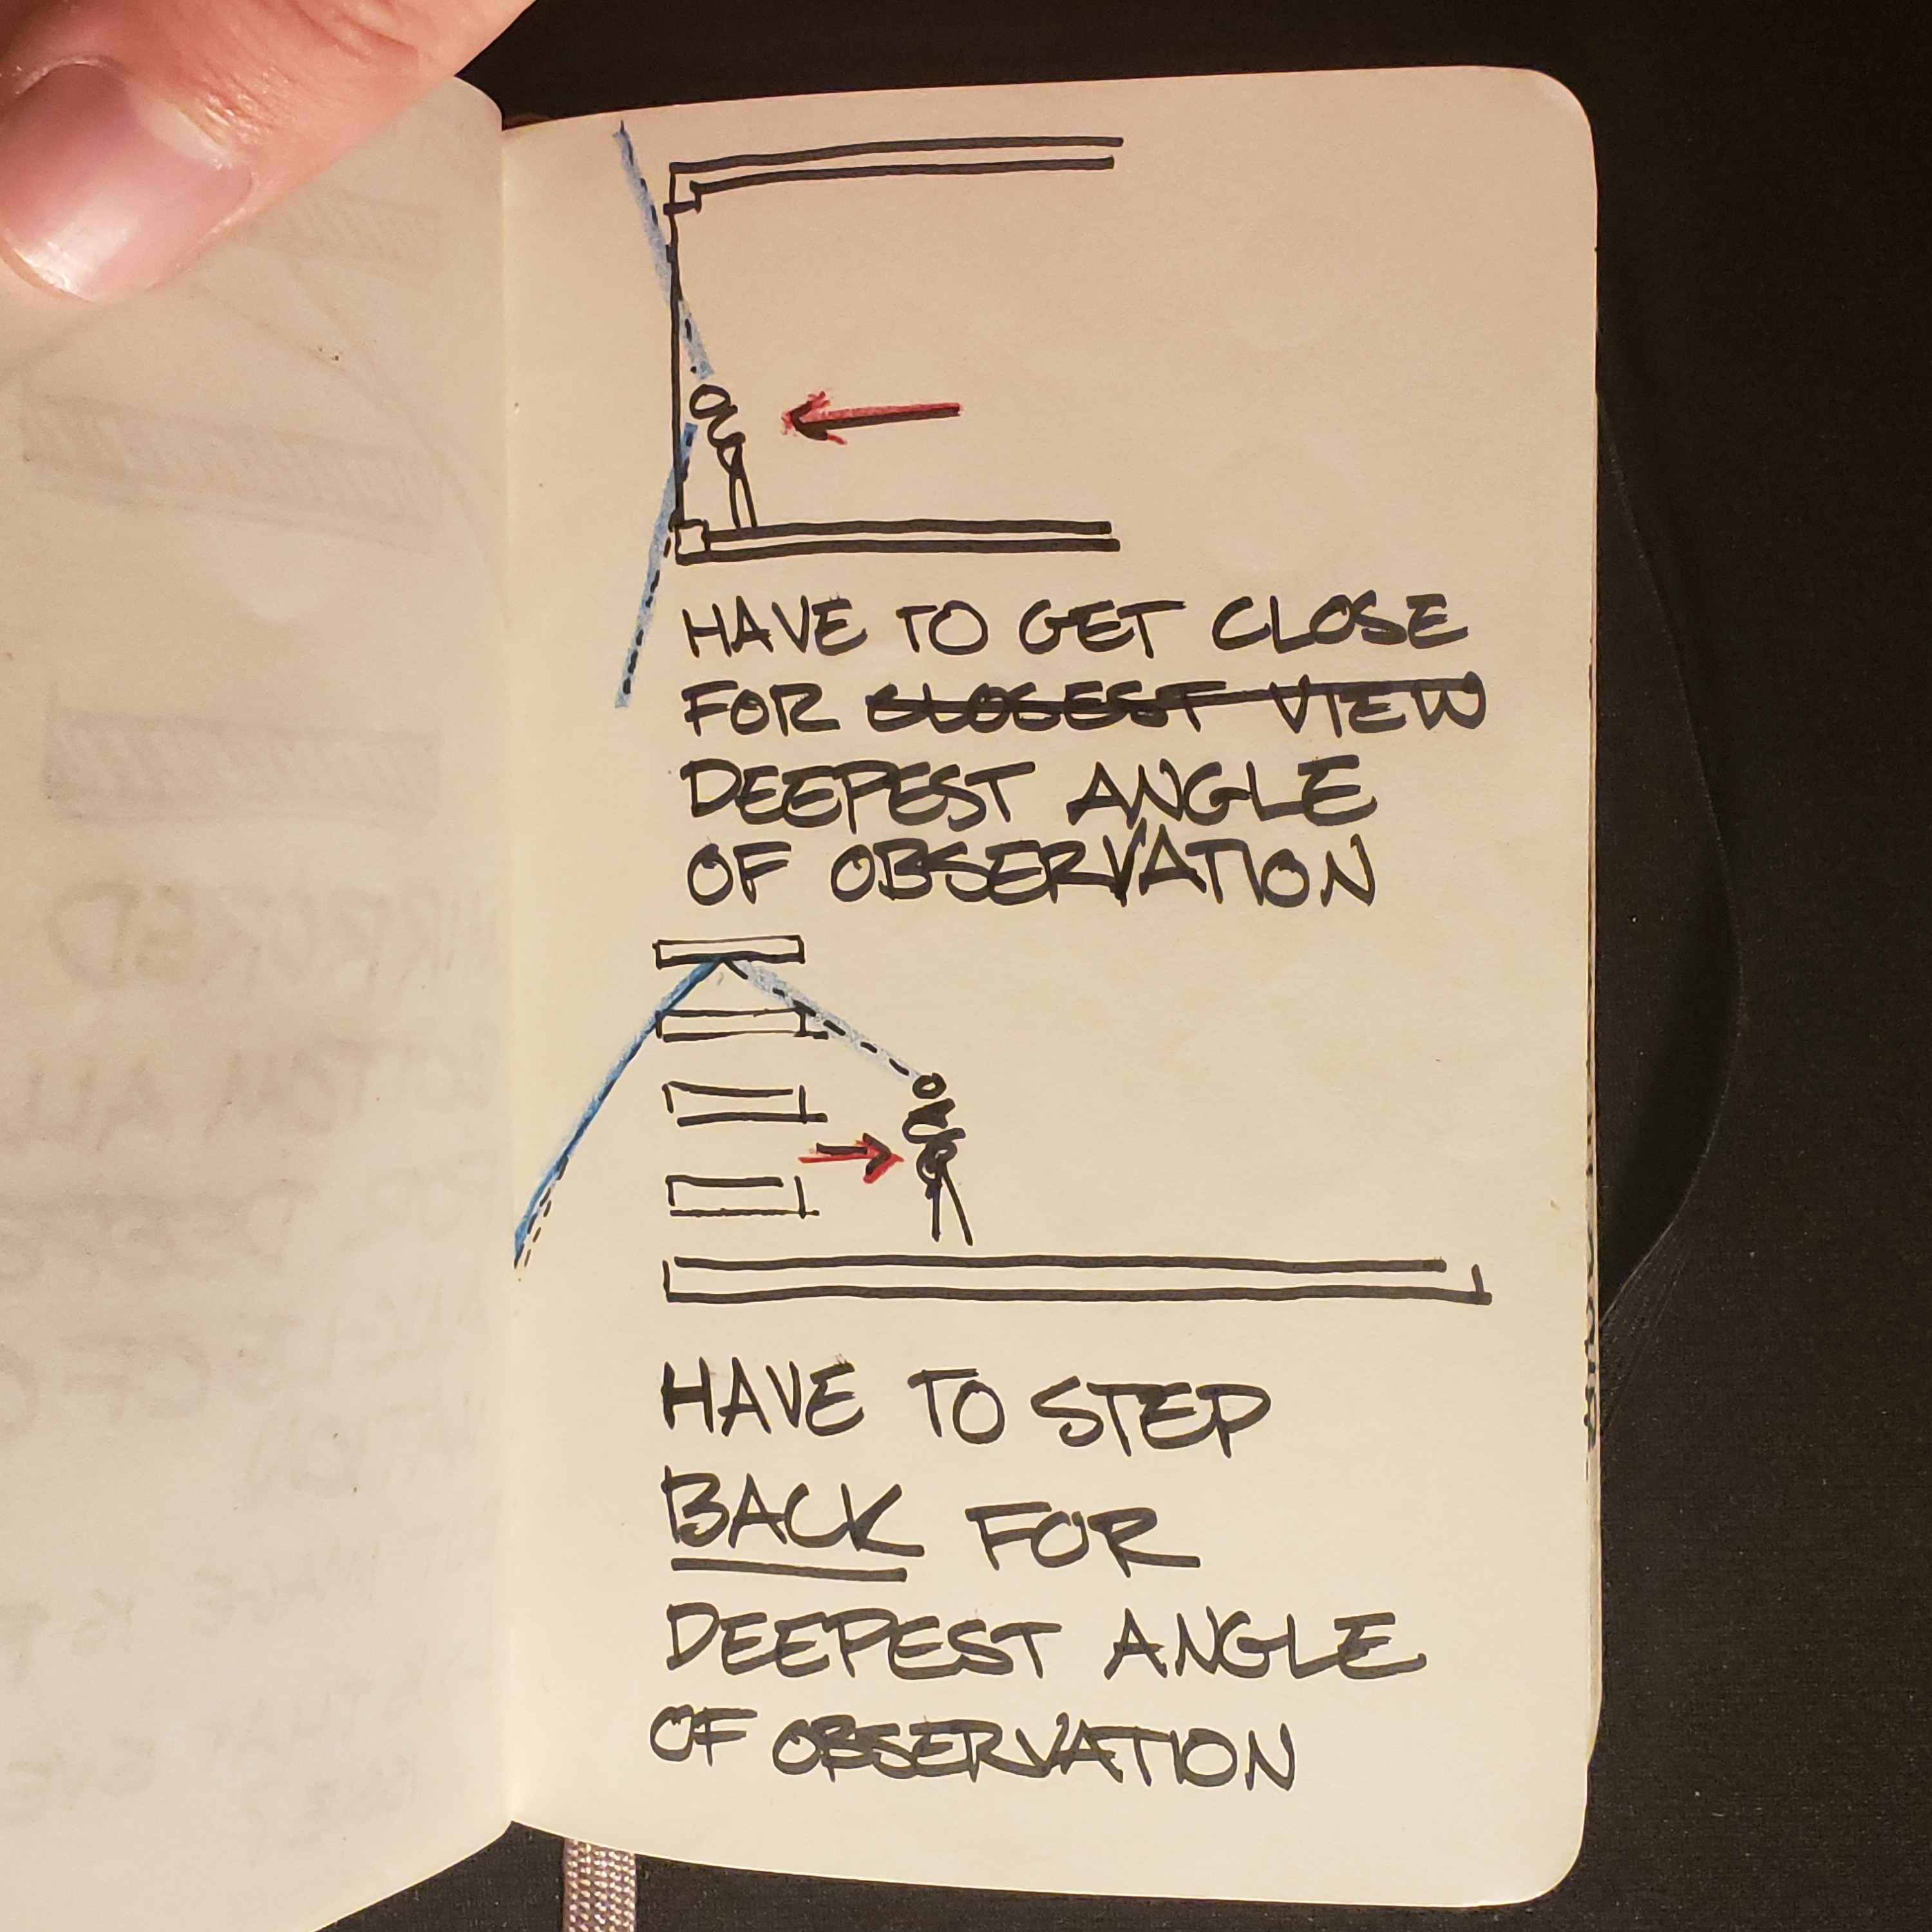 HAVE TO GET CLOSE
FOR CLOSEST VIEW
DEEPEST ANGLE
OF OBSERVATION
HAVE TO STEP
BACK FOR
DEEPEST ANGLE
OF OBSERVATION